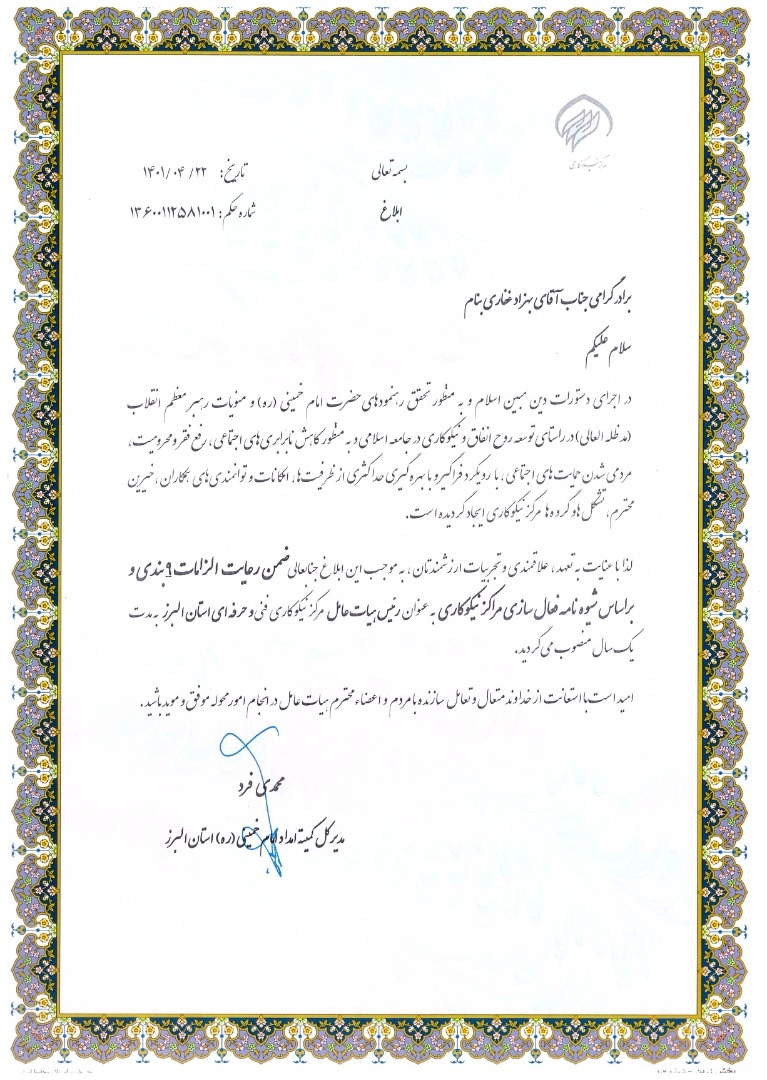 مرکز نیکوکاری
بسمه تعالی
تاریخ: ۱۴۰۱/۰۴/۲۲
ابلاغ
شماره حکم: ۱۳۶۰۰۱۱۲۵۸۱۰۰۱
برادر گرامی جناب آقای بهزاد غفاری بنام
سلام علیکم
در اجرای دستورات دین مبین اسلام و به منظور تحقق رهنمودهای حضرت امام خمینی (ره) و منویات رهبر معظم انقلاب
(مدظله العالی) در راستای توسعه روح انفاق و نیکوکاری در جامعه اسلامی و به منظور کاهش نابرابری های اجتماعی، رفع فقر و محرومیت،
مردمی شدن حمایت های اجتماعی، با رویکرد فراگیر و با بهره گیری حداکثری از ظرفیت ها، امکانات و توانمندی های همکاران، خیرین
محترم، تشکل ها و گروه ها مرکز نیکوکاری ایجاد گردیده است.
لذا با عنایت به تعهد، علاقمندی و تجربیات ارزشمندتان، به موجب این ابلاغ جنابعالی ضمن رعایت الزامات ۹ بندی و
براساس شیوه نامه فعال سازی مراکز نیکوکاری به عنوان رئیس هیات عامل مرکز نیکوکاری فنی و حرفه ای استان البرز به مدت
یک سال منصوب می گردید.
امید است با استعانت از خداوند متعال و تعامل سازنده با مردم و اعضاء محترم هیات عامل در انجام امور محوله موفق و موید باشید.
محمدی فرد
مدیر کل کمیته امداد امام خمینی (ره) استان البرز